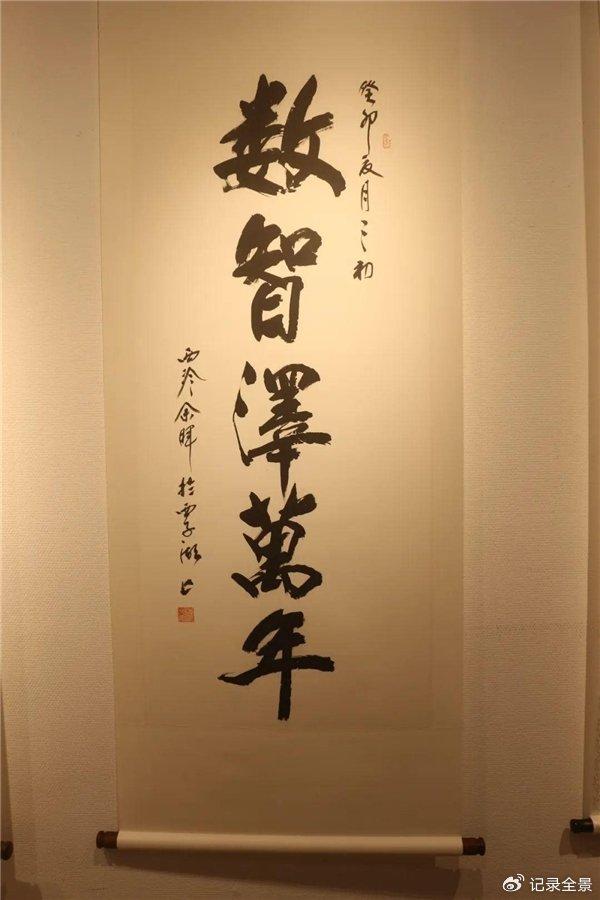 癸卯夏月之初
数智澤萬年
西泠余暉於西子湖上
记录全景